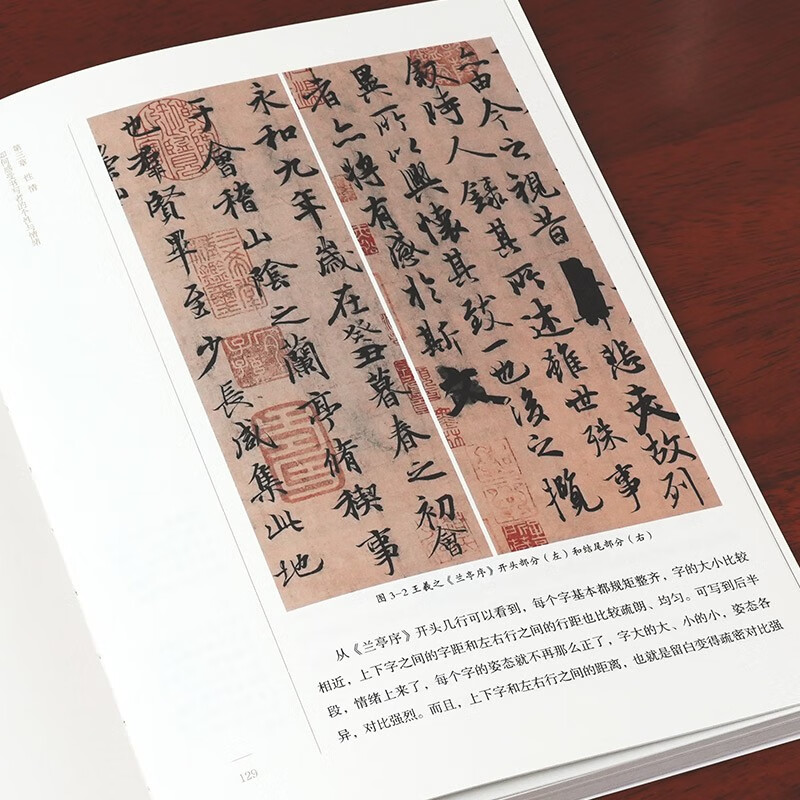 第三章
永和九年歲在癸丑暮春之初會
于會稽山陰之蘭亭脩稧事
也羣賢畢至少長咸集此地
由今之視昔悲夫故列
叙時人錄其所述雖世殊事
異所以興懷其致一也後之攬
者亦將有感於斯文
图 3-2 王羲之《兰亭序》开头部分（左）和结尾部分（右）
从《兰亭序》开头几行可以看到，每个字基本都规矩整齐，字的大小比较
相近，上下字之间的字距和左右行之间的行距也比较疏朗、均匀。可写到后半
段，情绪上来了，每个字的姿态就不再那么正了，字大的大、小的小，姿态各
异，对比强烈。而且，上下字和左右行之间的距离，也就是留白变得疏密对比强
129